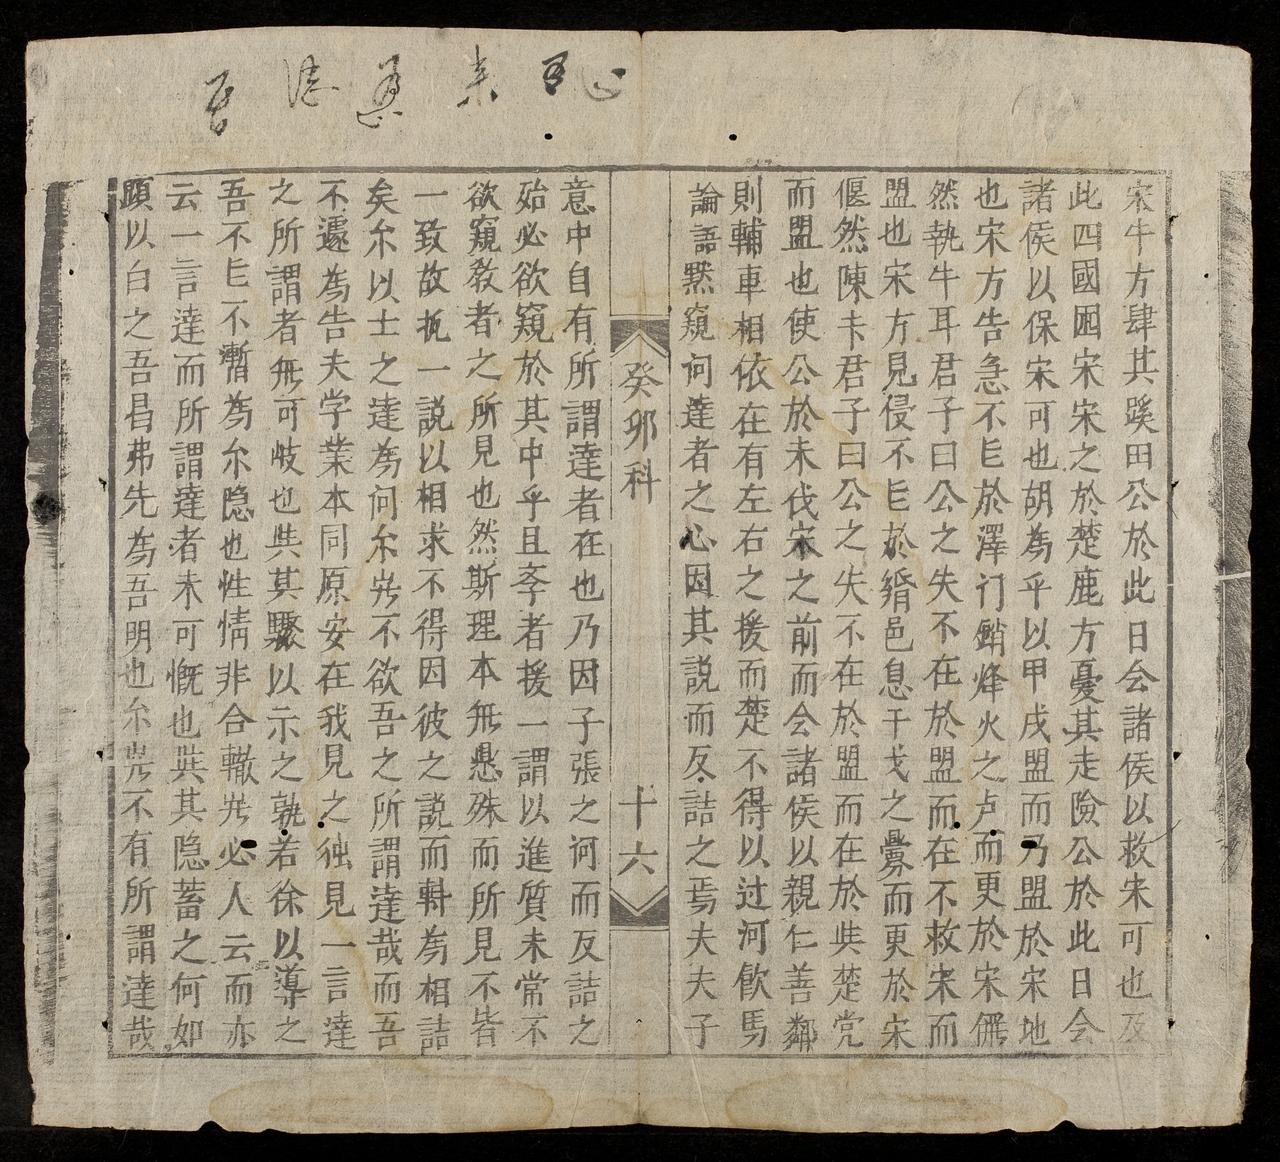 宋牛方肆其蹊田公於此日会諸侯以救宋可也及
此四國困宋宋之於楚鹿方憂其走險公於此日会
諸侯以保宋可也胡為乎以甲戌盟而乃盟於宋地
也宋方告急不㠯於澤门鮹烽火之卢而更於宋
然執牛耳君子曰公之失不在於盟而在不救宋而
盟也宋方見侵不㠯於緡邑息干戈之釁而更於宋
偃然陳卡君子曰公之失不在於盟而在於𠀍楚党
而盟也使公於未伐宋之前而会諸侯以親仁善鄰
則輔車相依在有左右之援而楚不得以过河飲馬
論語黙窺问達者之心因其説而反詰之焉夫夫子
癸卯科
十六
意中自有所謂達者在也乃因子張之问而反詰之
殆必欲窺於其中乎且斈者援一謂以進質未常不
欲窺教者之所見也然斯理本無懸殊而所見不皆
一致故扼一説以相求不得因彼之説而斠為相詰
矣尔以士之達為问尔岂不欲吾之所謂達哉而吾
不遽為告夫学業本同原安在我見之独見一言達
之所謂者無可歧也𠀍其驟以示之孰若徐以導之
吾不㠯不漸為尔隐也性情非合轍岂必人云而亦
云一言達而所謂達者未可慨也𠀍其隐蓄之何如
顕以白之吾曷弗先為吾明也尔岂不有所謂達哉